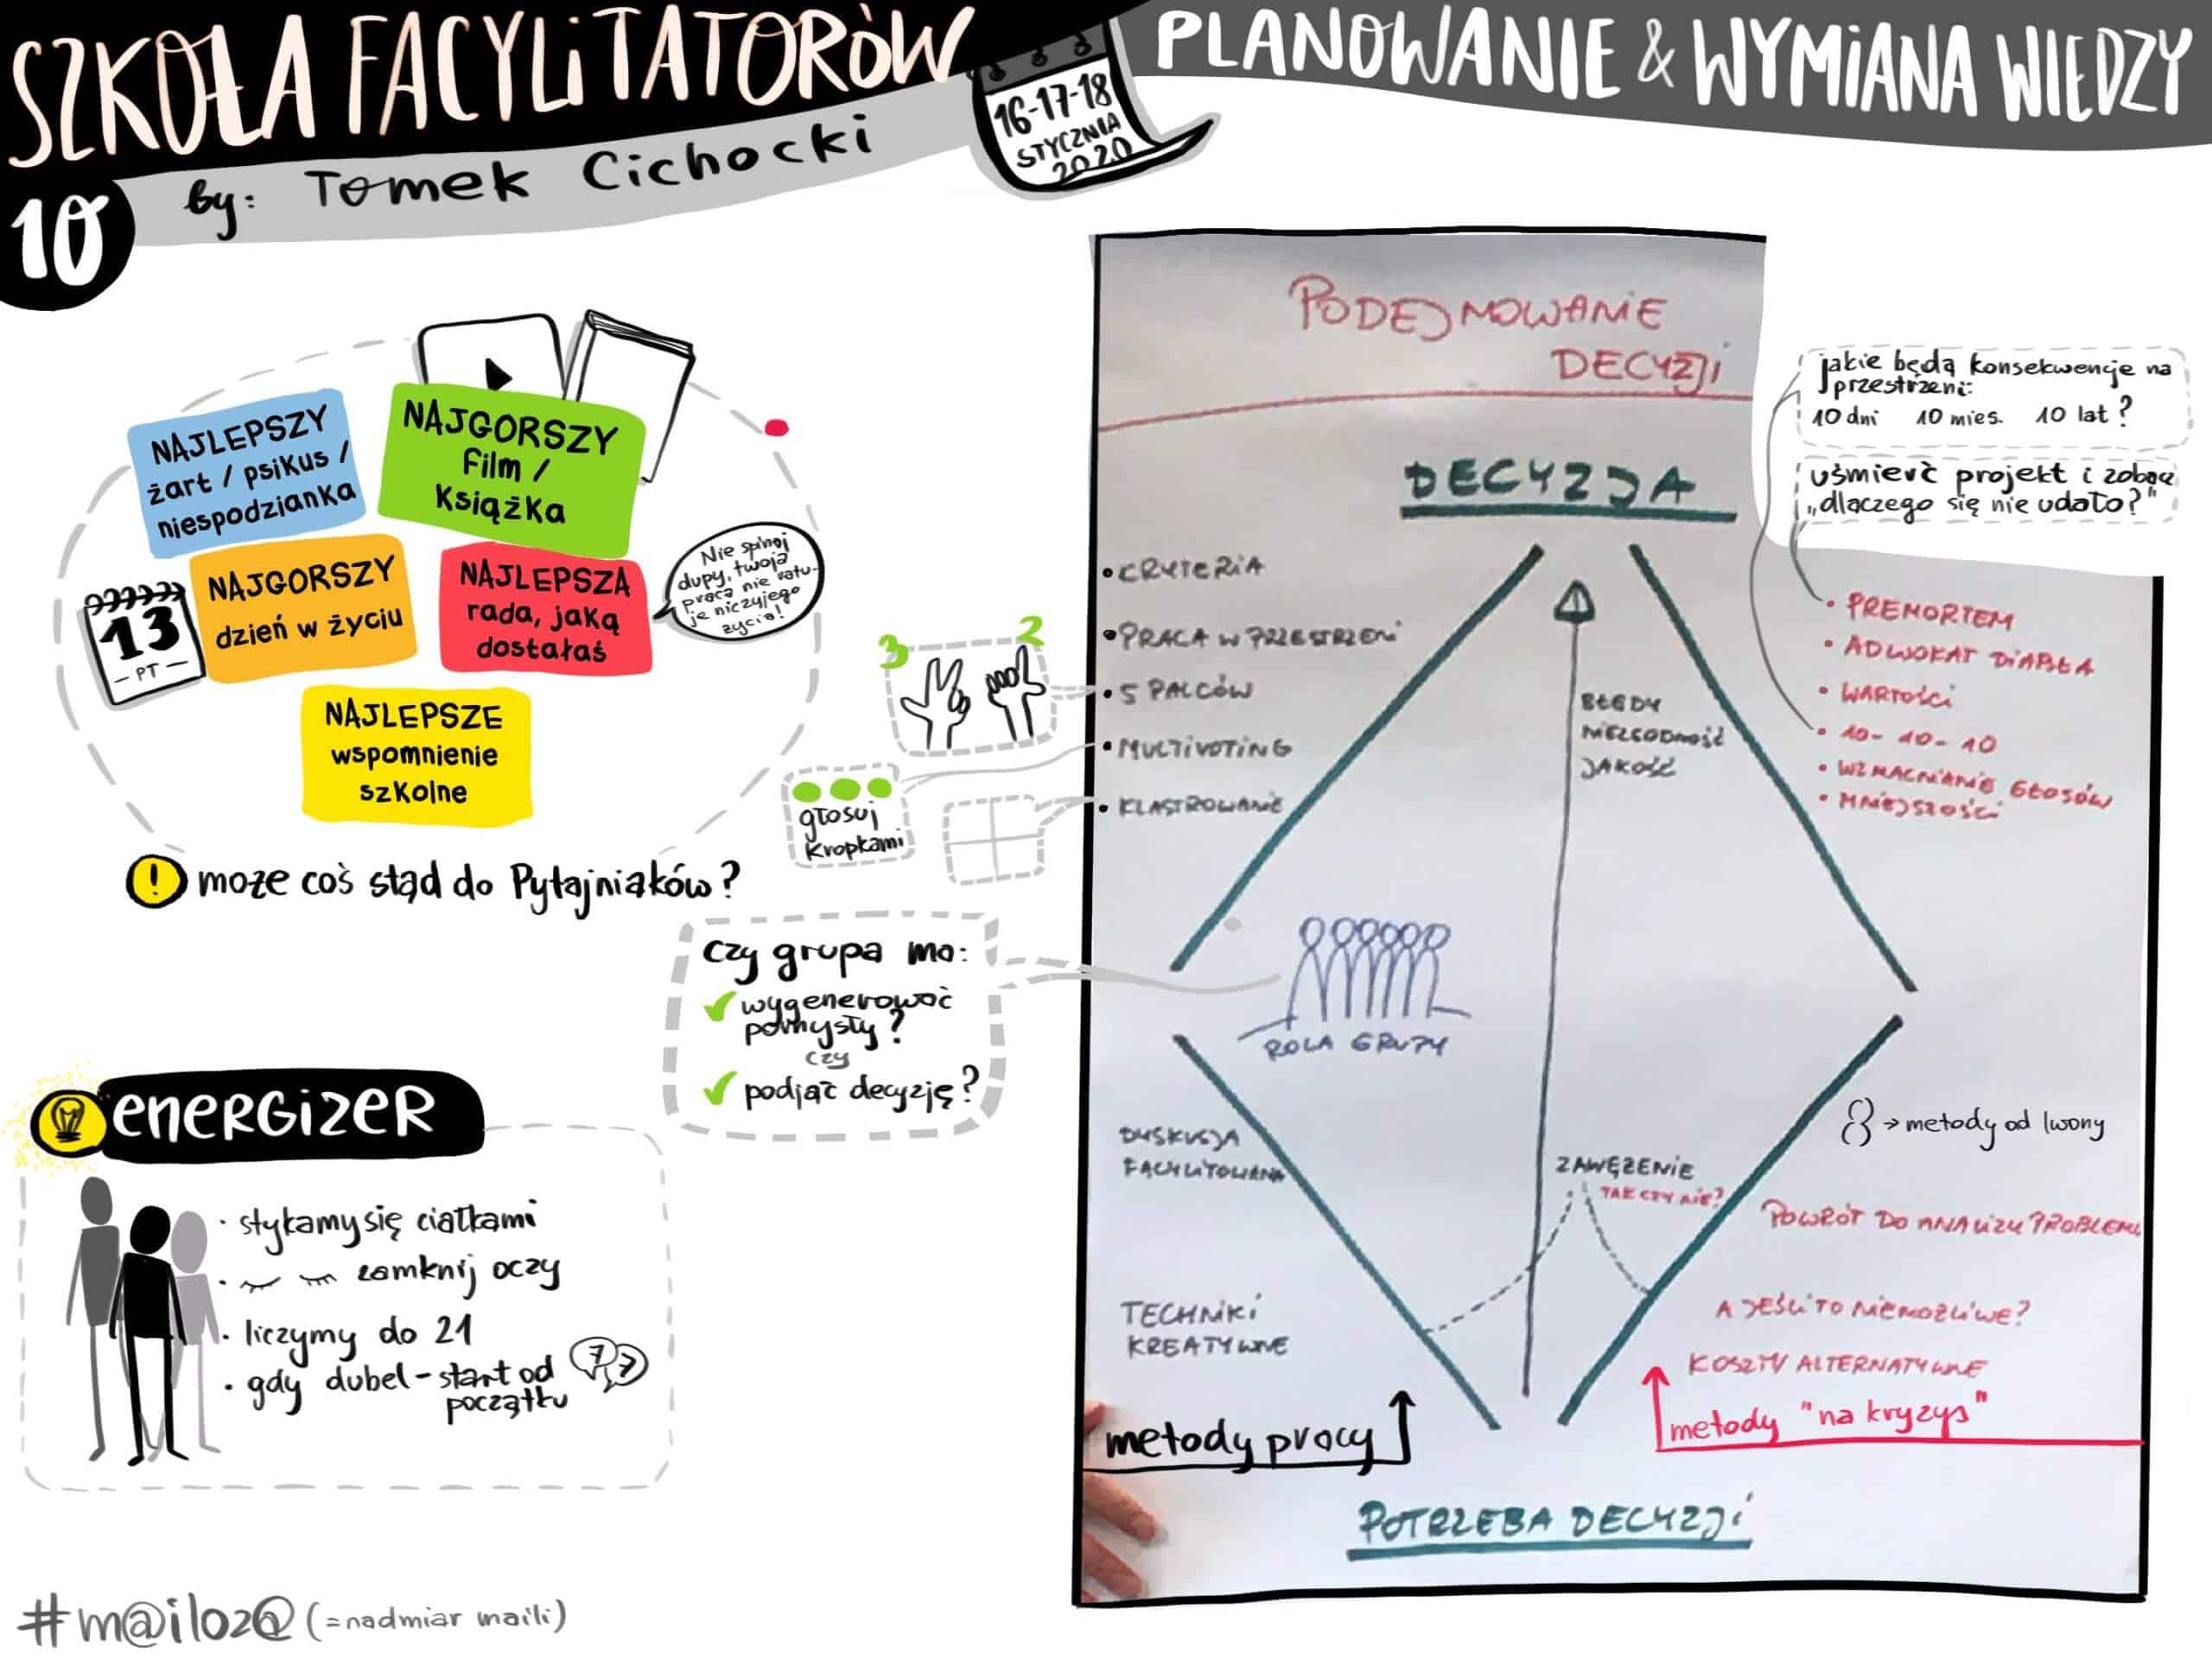 SZKOŁA FACYLITATORÓW
PLANOWANIE & WYMIANA WIEDZY
16-17-18
STYCZNIA
2020
10
by: Tomek Cichocki
NAJLEPSZY
żart / psikus /
niespodzianka
NAJGORSZY
film /
książka
13
– PT –
NAJGORSZY
dzień w życiu
NAJLEPSZA
rada, jaką
dostałaś
Nie spinaj
dupy, twoja
praca nie ratu-
je niczyjego
życia!
NAJLEPSZE
wspomnienie
szkolne
! może coś stąd do Pytajniaków?
ENERGIZER
· stykamy się ciałkami
· zamknij oczy
· liczymy do 21
· gdy dubel - start od
początku
7 7
#m@iloz@ (=nadmiar maili)
3 2
głosuj
kropkami
czy grupa ma:
wygenerować
pomysły?
czy
podjąć decyzję?
PODEJMOWANIE
DECYZJI
DECYZJA
• KRYTERIA
• PRACA W PRZESTRZENI
• 5 PALCÓW
• MULTIVOTING
• KLASTROWANIE
BŁĘDY
NIEZGODNOŚĆ
JAKOŚĆ
jakie będą konsekwencje na
przestrzeni:
10 dni 10 mies. 10 lat?
uśmierć projekt i zobacz
"dlaczego się nie udało?"
• PREMORTEM
• ADWOKAT DIABŁA
• WARTOŚCI
• 10-10-10
• WZMACNIANIE GŁOSÓW
• MNIEJSZOŚCI
ROLA GRUPY
DYSKUSJA
FACYLITOWANA
TECHNIKI
KREATYWNE
ZAWĘŻENIE
TAK CZY NIE?
→ metody od Iwony
POWRÓT DO ANALIZY PROBLEMU
A JEŚLI TO NIEMOŻLIWE?
KOSZTY ALTERNATYWNE
metody "na kryzys"
metody pracy
POTRZEBA DECYZJI